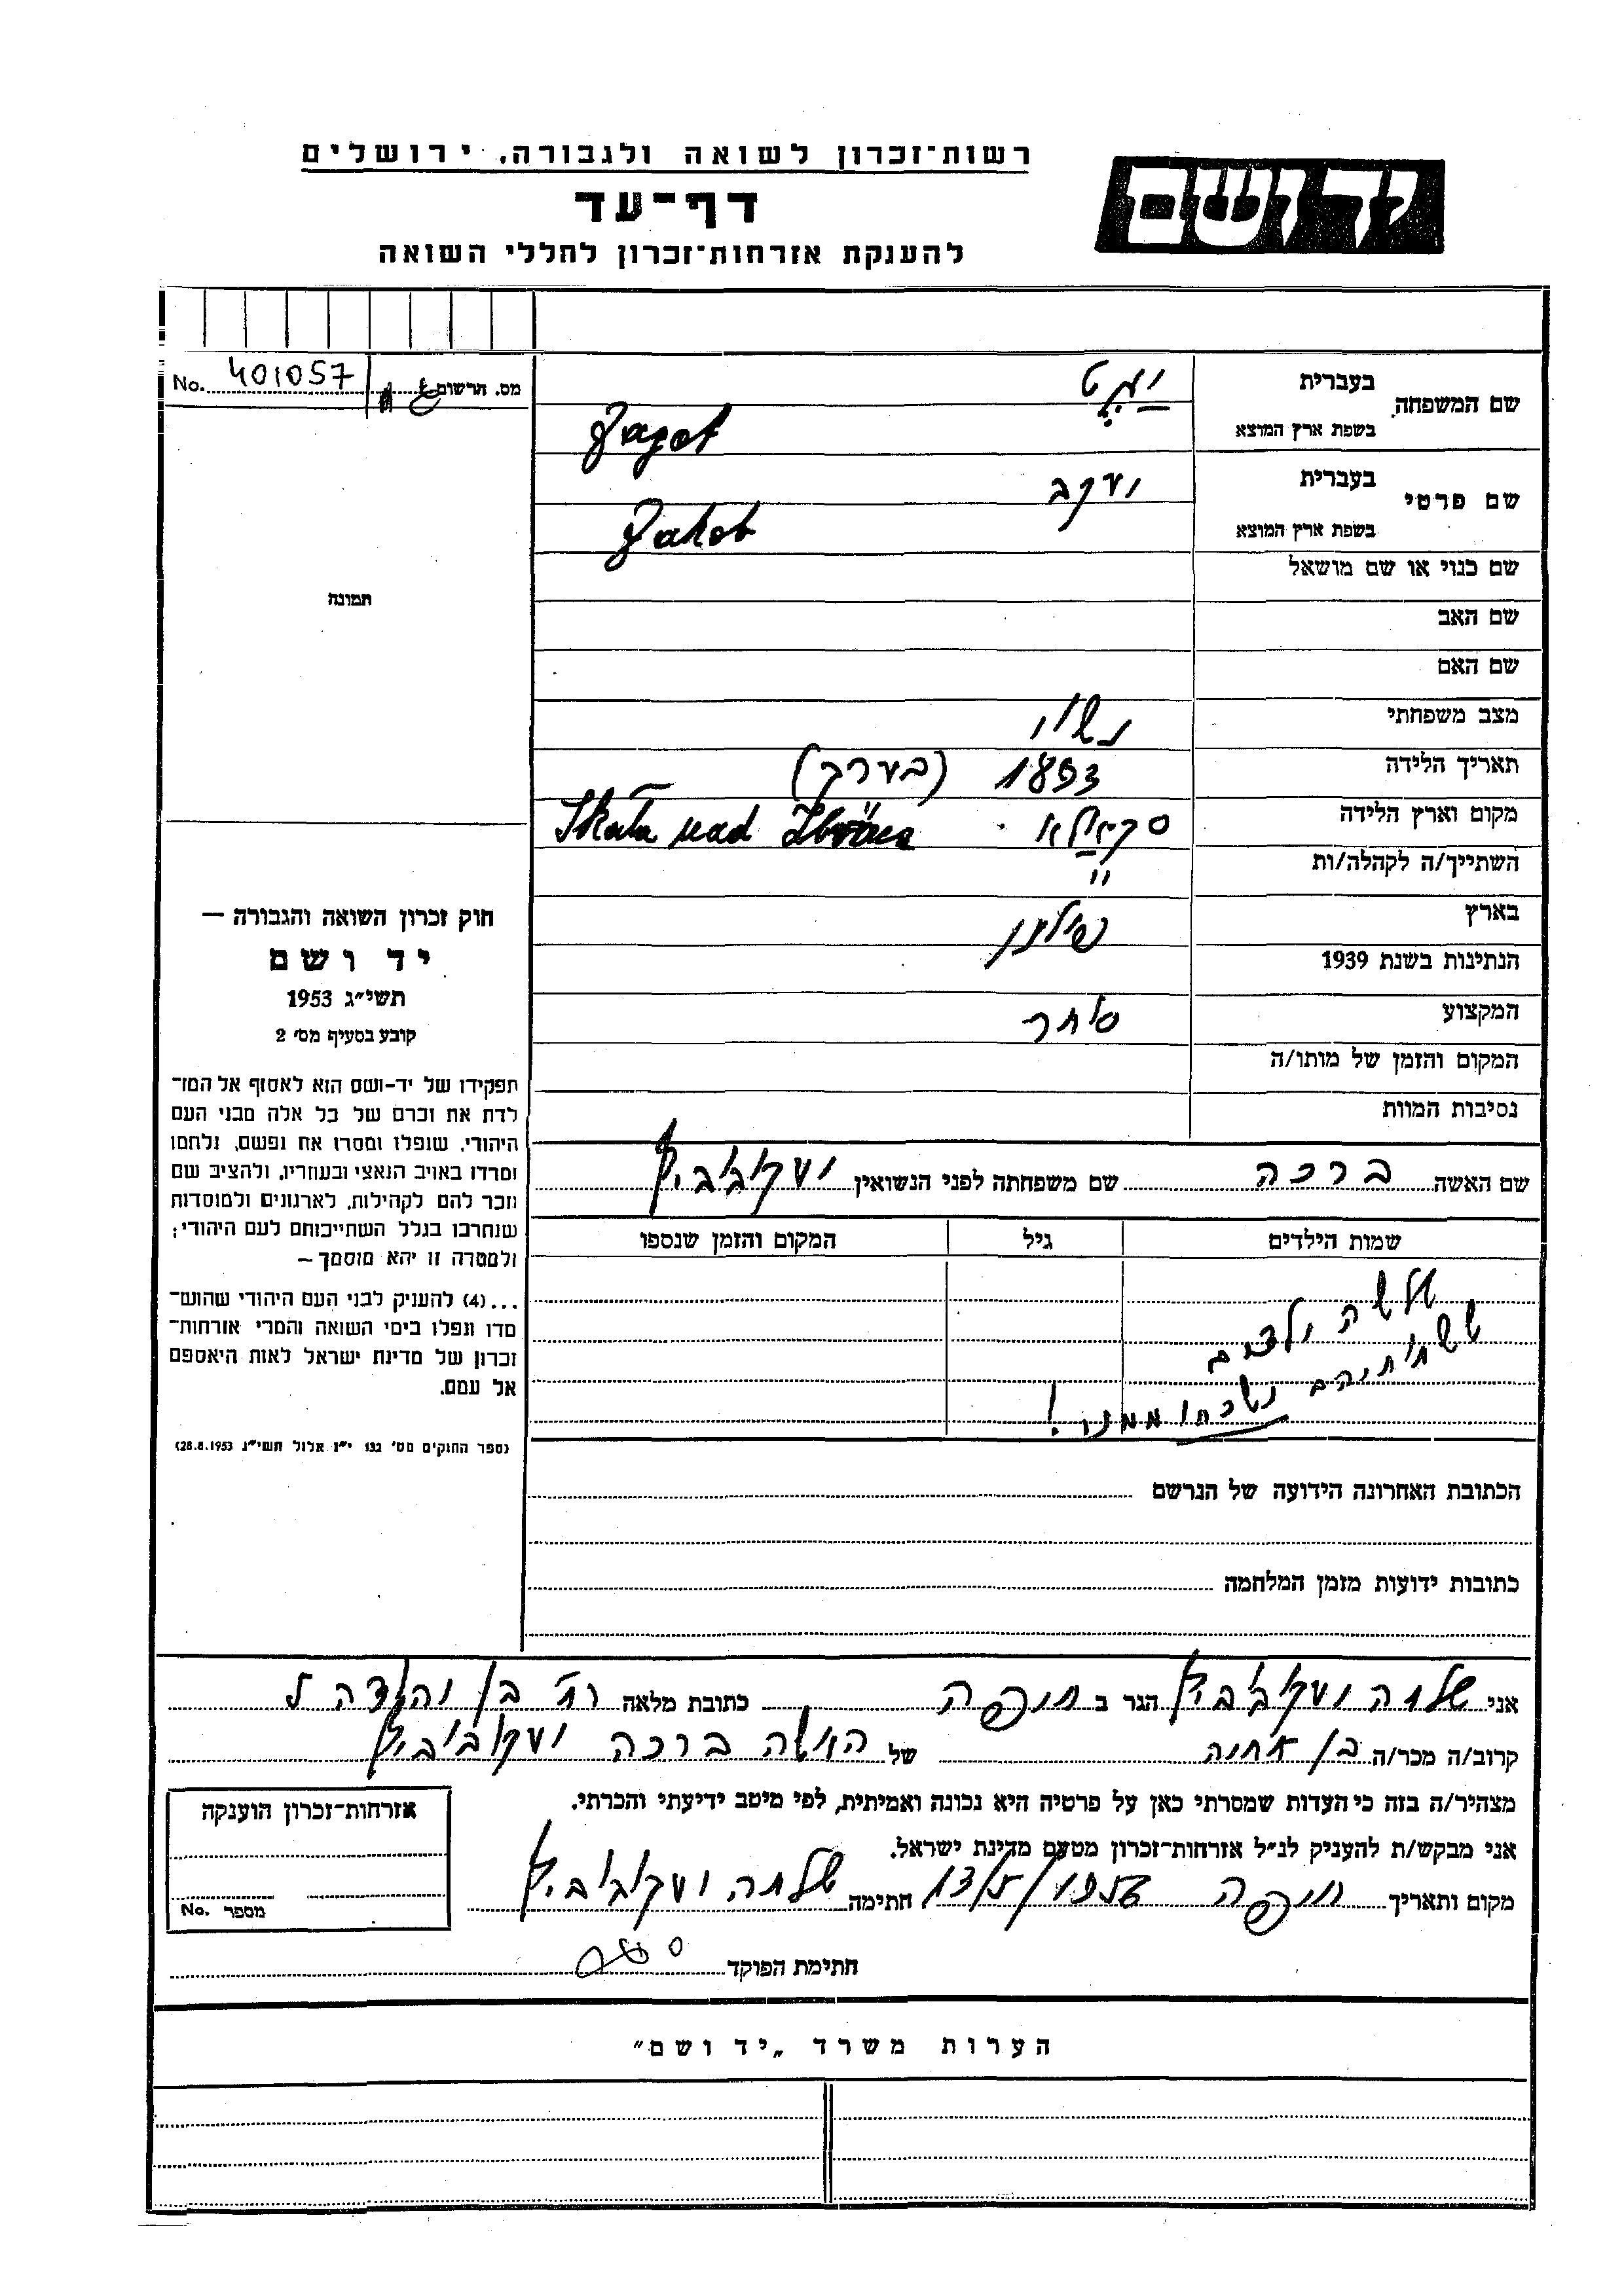 רשות־זכרון לשואה ולגבורה, ירושלים
יד ושם
דף־עד
להענקת אזרחות־זכרון לחללי השואה
מס. הרשום
No. 401057
שם המשפחה
בעברית
בשפת ארץ המוצא
Jagot
שם פרטי
בעברית יעקב
בשפת ארץ המוצא Jakob
שם כנוי או שם מושאל
שם האב
שם האם
מצב משפחתי נשוי
תאריך הלידה 1893 (בערך)
מקום וארץ הלידה סקאלא Skała nad Zbručem
השתייך/ה לקהלה/ות "
בארץ פולין
הנתינות בשנת 1939
המקצוע סוחר
המקום והזמן של מותו/ה
נסיבות המוות
תמונה
חוק זכרון השואה והגבורה —
יד ושם
תשי״ג 1953
קובע בסעיף מס׳ 2
תפקידו של יד-ושם הוא לאסוף אל המו־
לדת את זכרם של כל אלה מבני העם
היהודי, שנפלו ומסרו את נפשם, נלחמו
ומרדו באויב הנאצי ובעוזריו, ולהציב שם
וזכר להם לקהילות, לארגונים ולמוסדות
שנחרבו בגלל השתייכותם לעם היהודי;
ולמטרה זו יהא מוסמך —
...(4) להעניק לבני העם היהודי שהוש־
מדו ונפלו בימי השואה והמרי אזרחות־
זכרון של מדינת ישראל לאות היאספם
אל עמם.
(ספר החוקים מס׳ 132 י״ז אלול תשי״ג 28.8.1953)
שם האשה ברכה שם משפחתה לפני הנשואין יעקובוביץ
שמות הילדים גיל המקום והזמן שנספו
שלשה ילדים
ששמותיהם נשכחו ממני!
הכתובת האחרונה הידועה של הנרשם
כתובות ידועות מזמן המלחמה
אני שלמה יעקובוביץ הגר ב חיפה כתובת מלאה רח׳ בן יהודה 5
קרוב/ה מכר/ה בן אחיה של האשה ברכה יעקובוביץ
מצהיר/ה בזה כי העדות שמסרתי כאן על פרטיה היא נכונה ואמיתית, לפי מיטב ידיעתי והכרתי.
אני מבקש/ת להעניק לנ״ל אזרחות־זכרון מטעם מדינת ישראל.
מקום ותאריך חיפה חתימה שלמה יעקובוביץ
חתימת הפוקד
אזרחות־זכרון הוענקה
מספר No.
הערות משרד „יד ושם״